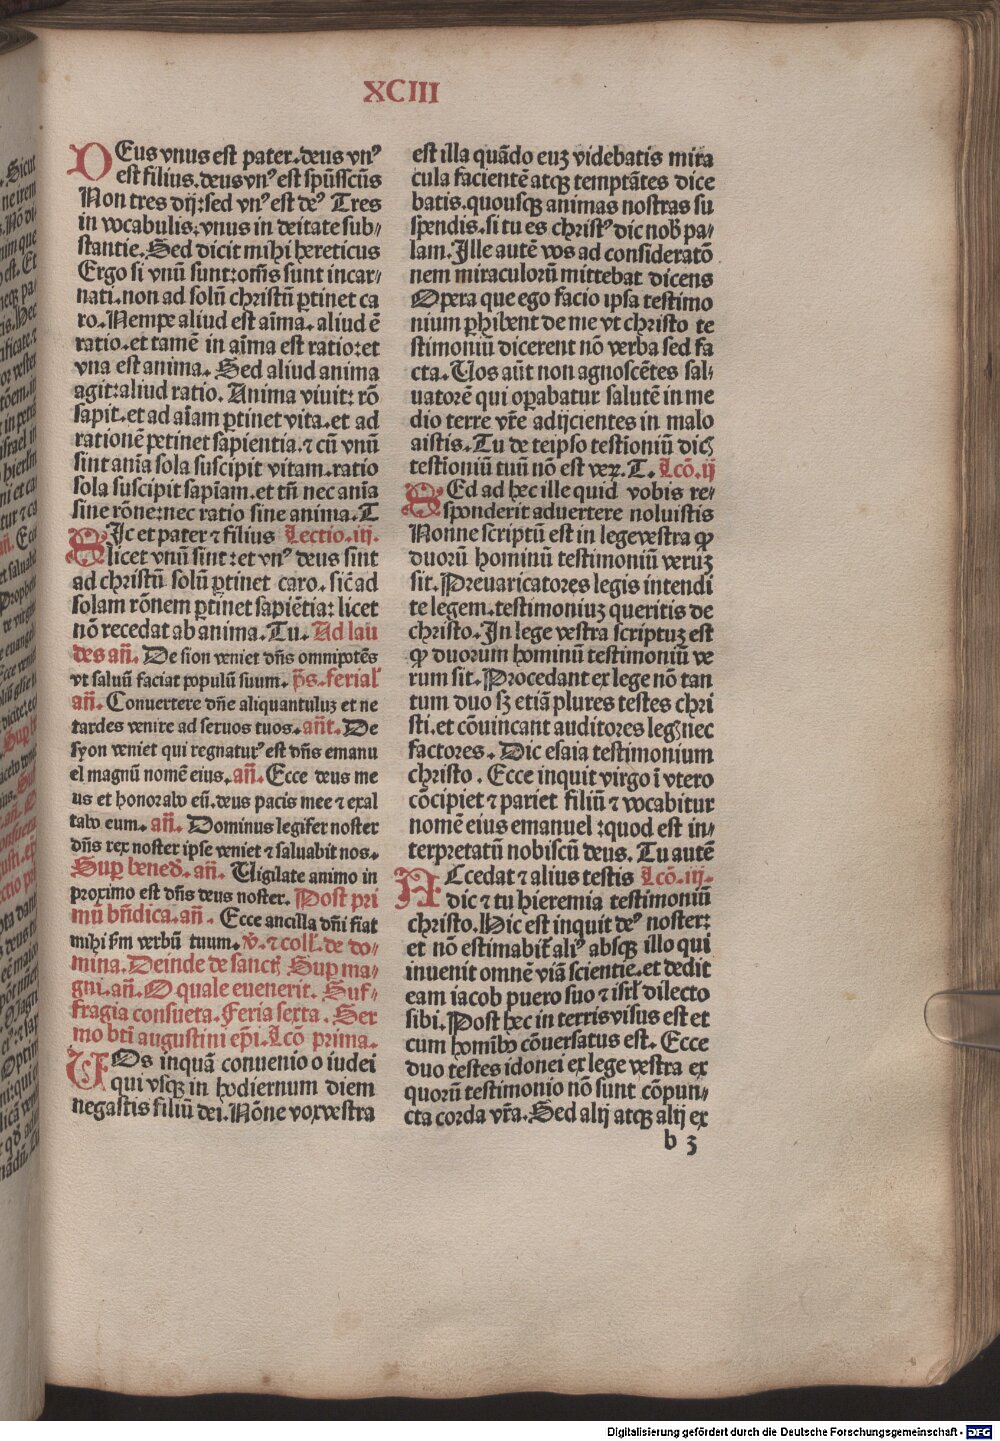 XCIII
DEus vnus est pater.deus vnꝰ
est filius.deus vnꝰ est spūssctūs
Non tres dij:sed vnꝰ est deꝰ Tres
in vocabulis, vnus in deitate sub-
stantie. Sed dicit mihi hereticus
Ergo si vnū sunt:om̄s sunt incar-
nati.non ad solū christū ꝑtinet ca
ro.Nempe aliud est aīma.aliud ē
ratio.et tamē in aīma est ratio:et
vna est anima. Sed aliud anima
agit:aliud ratio. Anima viuit: rō
sapit.et ad aīam ꝑtinet vita.et ad
rationē ꝑtinet sapientia.⁊ cū vnū
sint anīa sola suscipit vitam.ratio
sola suscipit sapīam.et tn̄ nec anīa
sine rōne:nec ratio sine anima.T
SIc et pater ⁊ filius Lectio.iij.
licet vnū sint:et vnꝰ deus sint
ad christū solū ꝑtinet caro. sic̄ ad
solam rōnem ꝑtinet sapiētia: licet
nō recedat ab anima.Tu. Ad lau
des an̄. De sion veniet dn̄s omnipotēs
vt saluū faciat populū suum. p̄s.ferial
an̄. Conuertere dn̄e aliquantuluꝫ et ne
tardes venire ad seruos tuos.an̄t. De
syon veniet qui regnaturꝰ est dn̄s emanu
el magnū nomē eius.an̄. Ecce deus me
us et honorabo eū.deus pacis mee ⁊ exal
tabo eum. an̄. Dominus legifer noster
dn̄s rex noster ipse veniet ⁊ saluabit nos.
Suꝑ bened̄. an̄. Uigilate animo in
proximo est dn̄s deus noster. Post pri
mū bn̄dica.an̄. Ecce ancilla dn̄i fiat
mihi ẜm verbū tuum.v̄.⁊ coll̄.de do-
mina.Deinde de sanct̄ Suꝑ ma-
gni.an̄.O quale euenerit. Suf-
fragia consueta.Feria sexta. Ser
mo bt̄i augustini ep̄i.Lc̄o prima.
UOs inquā conuenio o iudei
qui vsqꝫ in hodiernum diem
negastis filiū dei.Nōne vox vestra
est illa quādo euꝫ videbatis mira
cula facientē atqꝫ temptātes dice
batis.quousqꝫ animas nostras su
spendis.si tu es christꝰ dic nob̄ pa-
lam.Ille autē vos ad consideratō
nem miraculorū mittebat dicens
Opera que ego facio ipsa testimo
nium ꝑhibent de me vt christo te
stimoniū dicerent nō verba sed fa
cta.Uos aūt non agnoscētes sal-
uatorē qui oꝑabatur salutē in me
dio terre vr̄e adijcientes in malo
aistis.Tu de teipso testioniū dicꝭ
testioniū tuū nō est veꝝ.T. Lcō.ij
SEd ad hec ille quid vobis re-
sponderit aduertere noluistis
Nonne scriptū est in lege vestra ꝙ
duorū hominū testimoniū veruꝫ
sit.Preuaricatores legis intendi
te legem.testimoniuꝫ queritis de
christo.In lege vestra scriptuꝫ est
ꝙ duorum hominū testimoniū ve
rum sit.Procedant ex lege nō tan
tum duo sꝫ etiā plures testes chri
sti.et cōuincant auditores legꝭ nec
factores. Dic esaia testimonium
christo. Ecce inquit virgo ī vtero
cōcipiet ⁊ pariet filiū ⁊ vocabitur
nomē eius emanuel :quod est in-
terpretatū nobiscū deus. Tu autē
ACcedat ⁊ alius testis Lcō.iij.
dic ⁊ tu hieremia testimoniū
christo.Hic est inquit deꝰ noster:
et nō estimabit̄ aliꝰ absqꝫ illo qui
inuenit omnē viā scientie.et dedit
eam iacob puero suo ⁊ isrl̄ dilecto
sibi.Post hec in terris visus est et
cum homībꝰ cōuersatus est. Ecce
duo testes idonei ex lege vestra ex
quorū testimonio nō sunt cōpun-
cta corda vr̄a.Sed alij atqꝫ alij ex
b 3
Digitalisierung gefördert durch die Deutsche Forschungsgemeinschaft - DFG